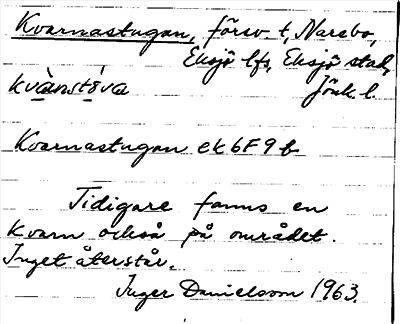 Kvarnastugan, försv. t, Narebo,
Eksjö lfs, Eksjö stad,
kvànstó̤va Jönk. l.
Kvarnastugan ek 6F9f
Tidigare fanns en
kvarn också på området.
Inget återstår.
Inger Danielsson 1963.